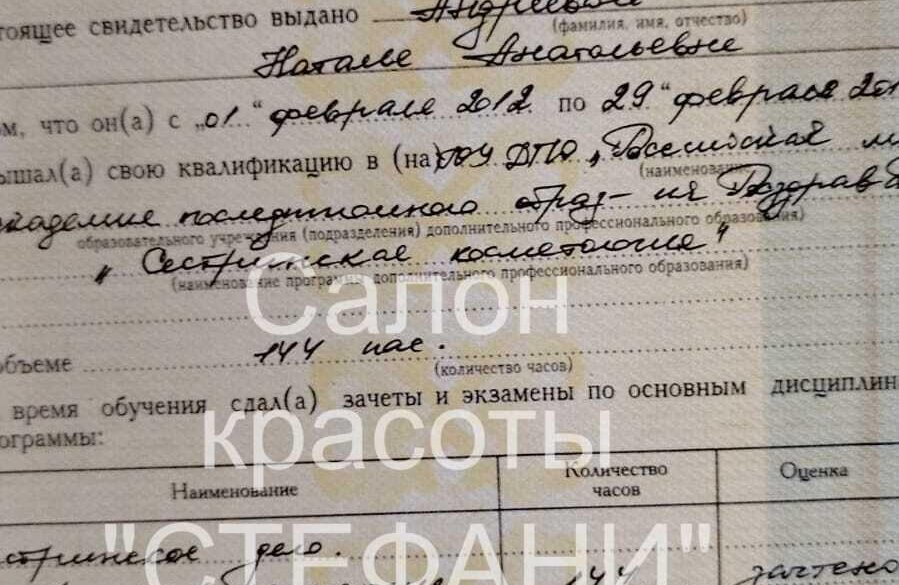 тоящее свидетельство выдано
(фамилия, имя, отчество)
Наталье Анатольевне
ом, что он(а) с „01" февраля 2012 по 29" февраля 201
ышал(а) свою квалификацию в (на) ГОУ ДПО „Российской м
(наименование
академие последипломного образ-ия Росздрава
образовательного учреждения (подразделения) дополнительного профессионального образования)
„Сестринская косметология"
(наименование программы дополнительного профессионального образования)
Салон
объеме 144 час.
(количество часов)
время обучения сдал(а) зачеты и экзамены по основным дисциплин
ограммы:
красоты
Наименование Количество часов Оценка
стринское дело.
"СТЕФАНИ"
144 зачтено